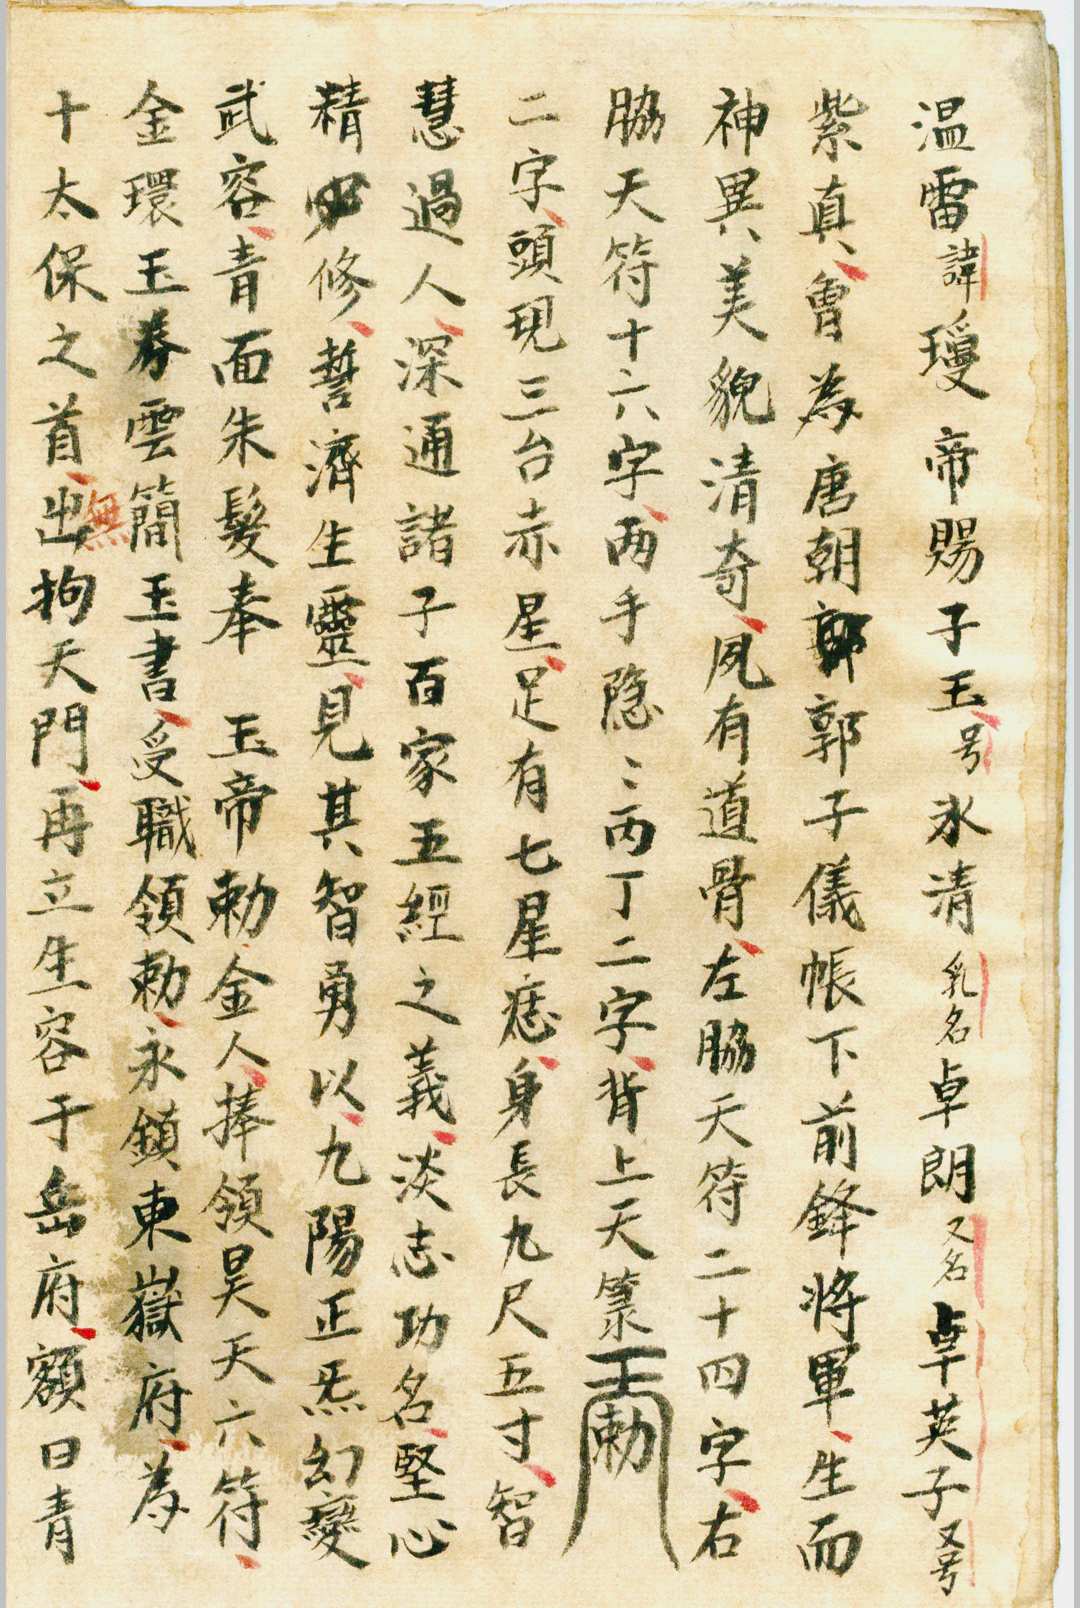 温雷諱瓊 帝賜子玉号永清乳名卓朗又名卓英子又号
紫真曾為唐朝郭郭子儀帳下前鋒將軍生而
神異美貌清奇夙有道骨左脇天符二十四字右
脇天符十六字兩手隐〻丙丁二字背上天篆玉勅
二字頭現三台赤星足有七星痣身長九尺五寸智
慧過人深通諸子百家五經之義淡志功名堅心
精修誓濟生靈見其智勇以九陽正炁幻變
武容青面朱髮奉 玉帝勅金人捧領昊天六符
金環玉券雲簡玉書受職領勅永鎮東嶽府為
十太保之首出無拘天門再立生容于岳府額曰青